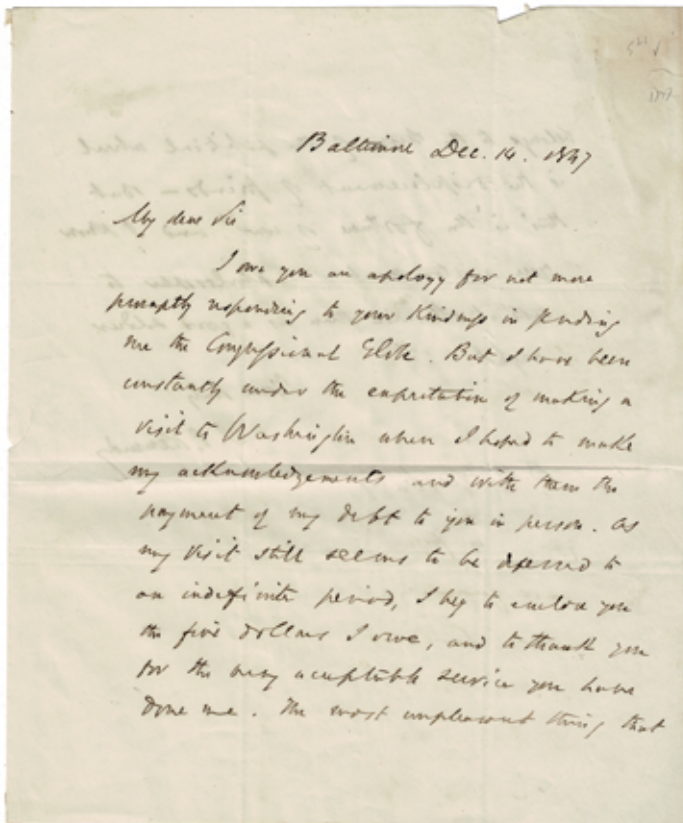 Baltimore Dec. 14. 1847
My dear Sir
I owe you an apology for not more
promptly responding to your kindness in sending
me the Congressional Globe. But I have been
constantly under the expectation of making a
visit to Washington when I hoped to make
my acknowledgements and with them the
payment of my debt to you in person. As
my visit still seems to be deferred to
an indefinite period, I beg to enclose you
the five dollars I owe, and to thank you
for the very acceptable service you have
done me. The most unpleasant thing that